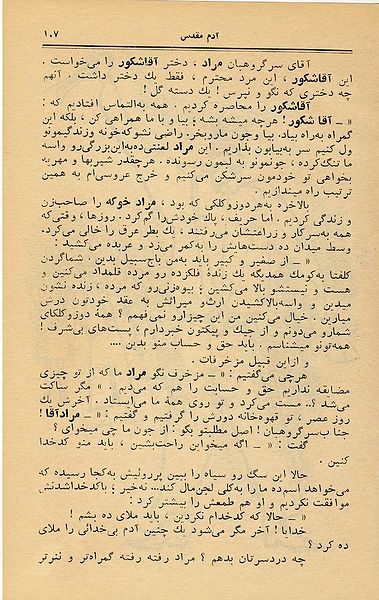 آدم مقدس ۱۰۷
آقای سرگروهبان مراد ، دختر آقاشکور را می‌خواست .
این آقاشکور ، این مرد محترم ، فقط یك دختر داشت . آنهم
چه دختری که نگو و نپرس ! یك دسته گل !
آقاشکور را محاصره کردیم . همه به‌التماس افتادیم که :
« ــ آقا شکور ! هرچه میشه بشه ؛ بیا و با ما همراهی کن ، بلکه این
گمراه به‌راه بیاد. بیا وجون ما روبخر. راضی نشوکه‌خونه وزندگیمونو
ول کنیم سر به‌بیابون بذاریم . این مراد لعنتی‌ده‌به‌این‌بزرگی‌رو واسه
ما تنگ‌کرده ، جونمونو به لبمون رسونده . هرچقدر شیربها و مهریه
بخواهی تو خودمون سرشکن می‌کنیم و خرج عروسی‌ام به همین
ترتیب راه میندازیم .
بالاخره به‌هردوزوکلکی که بود ، مراد خوکه را صاحب‌زن
و زندگی کردیم . اما حریف ، بك خودش‌را گم‌کرد. روزها ، وقتی‌که
همه به‌سرکار و زراعتشان می‌رفتند ، یك بطر عرق را خالی می‌کرد.
وسط میدان ده دست‌هایش را به‌کمر می‌زد و عربده می‌کشید :
« ــ از صغیر و کبیر باید به‌من باج‌سبیل بدین . شماگردن
کلفتا به‌کومك همدیگه یك زندهٔ فلکزده رو مرده قلمداد می‌کنین و
هست و نیستشو بالا می‌کشین ؛ بیوه‌زنی‌رو که مرده ، زنده نشون
میدین و واسه‌بالاکشیدن ارث‌و میراثش به عقد خودتون درش
میارین . خیال می‌کنین من این چیزارو نمی‌فهمم ؟ همهٔ دوزوکلکهای
شمارو می‌دونم و از جیك و پیکتون خبردارم ، پست‌های بی‌شرف !
همه‌تونو میشناسم . باید حق و حساب منو بدین ....
و ازاین قبیل مزخرفات .
هرچی می‌گفتیم : « ــ مزخرف نگو مراد ما که از تو چیزی
مضایقه نداریم حق و حسابت را هم که می‌دیم . » مگر ساکت
می‌شد ؟.. مست می‌کرد و تو روی همهٔ ما می‌ایستاد . آخرش یك
روز عصر ، تو قهوه‌خانه دورش را گرفتیم و گفتیم : « ــ مرادآقا !
جنا ب‌سرگروهبان ! اصل مطلبتو بگو : از جون ما چی میخوای ؟
گفت : « ــ اگه میخواین راحت‌بشین ، باید منو کدخدا
کنین .
حالا این سگ رو سیاه را ببین پرروئیش به‌کجا رسیده که
می‌خواهد اسم‌ده ما را به‌کلی لجن‌مال کند... نه‌خیر ؛ باکدخداشدنش
موافقت نکردیم و او هم طمعش را بیشتر کرد :
« ــ حالا که کدخدام نکردین ، باید ملای ده بشم !
خدایا ! آخر مگر می‌شود یك چنین آدم بی‌خدائی را ملای
ده کرد ؟
چه دردسرتان بدهم ؟ مراد رفته رفته گمراه‌تر و نترتر